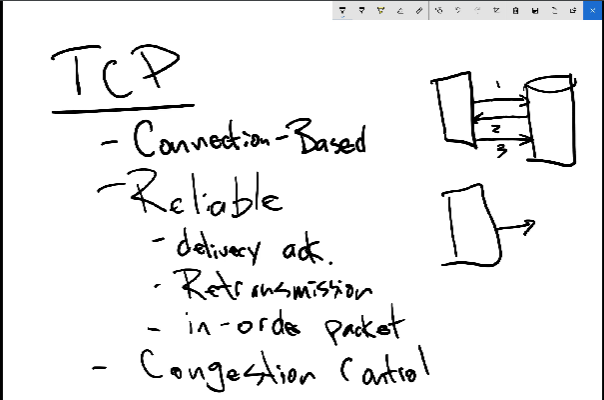 TCP
- Connection-Based
- Reliable
- delivery ack.
- Retransmission
- in-orde packet
- Congestion Control
1
2
3